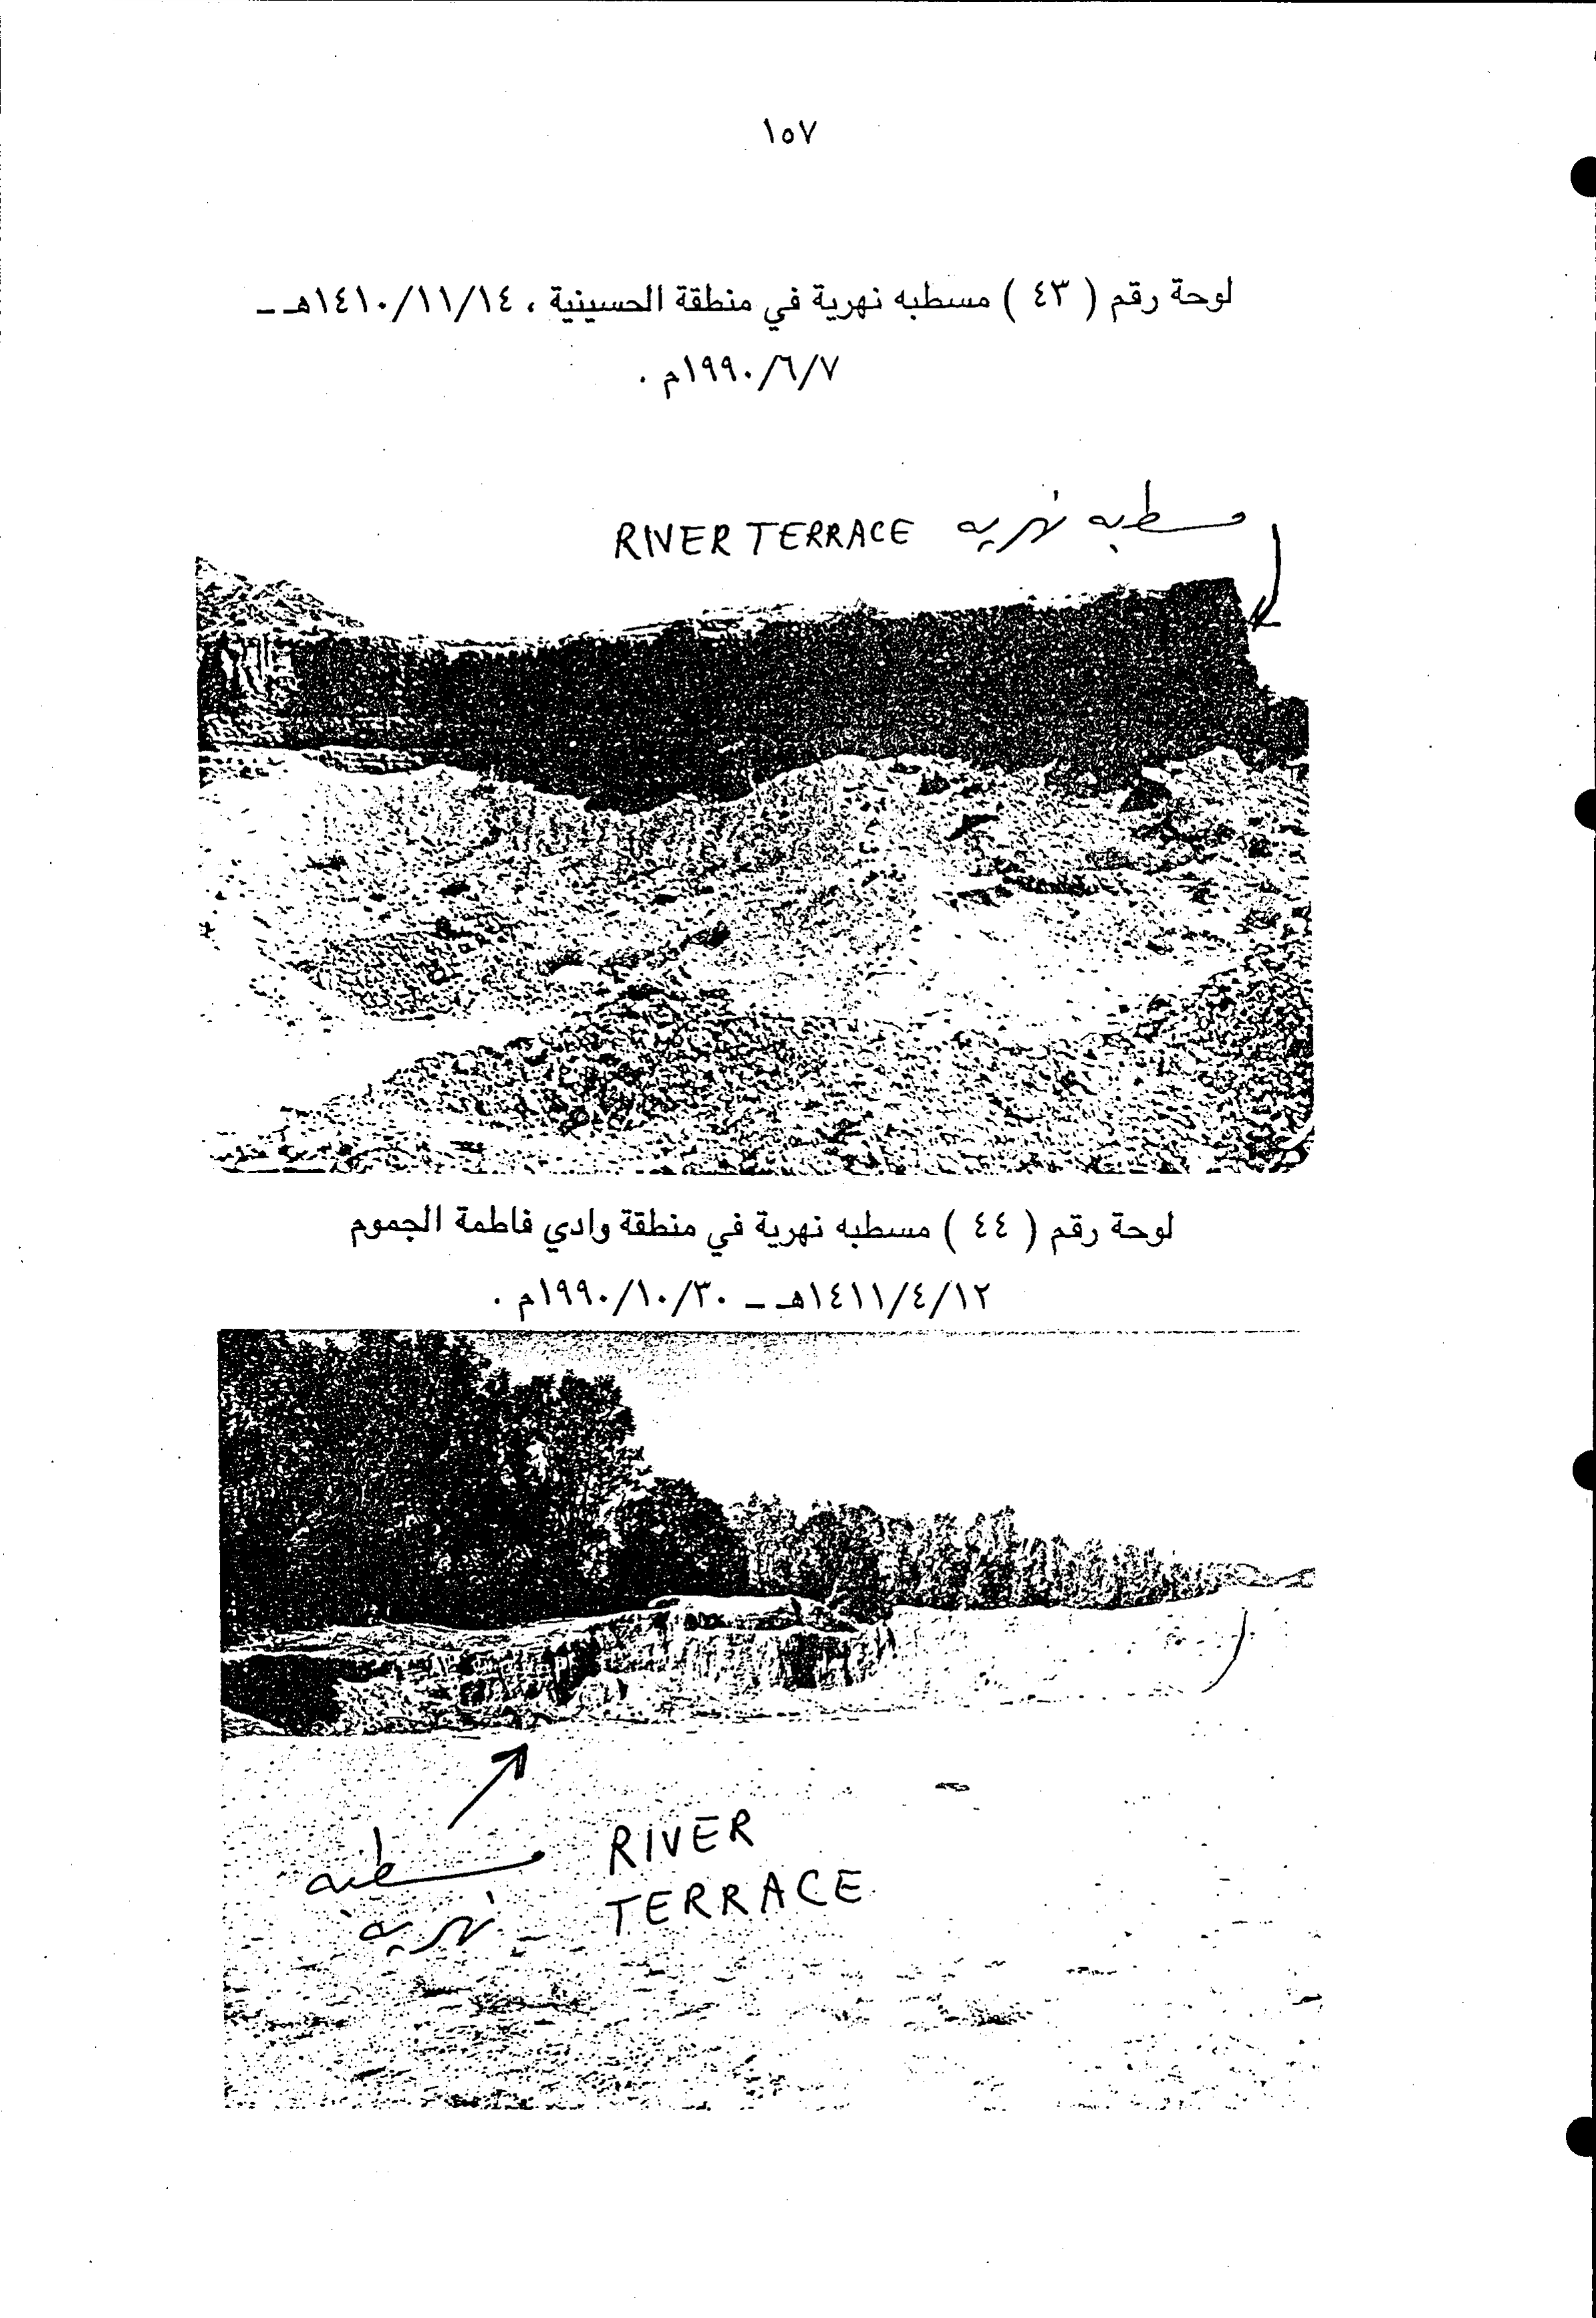 ١٥٧
لوحة رقم ( ٤٣ ) مسطبه نهرية في منطقة الحسينية ، ١٤١٠/١١/١٤هـ ـ
١٩٩٠/٦/٧م .
RIVER TERRACE مسطبه نهريه
لوحة رقم ( ٤٤ ) مسطبه نهرية في منطقة وادي فاطمة الجموم
١٤١١/٤/١٢هـ ـ ١٩٩٠/١٠/٣٠م .
مسطبه RIVER
نهريه TERRACE